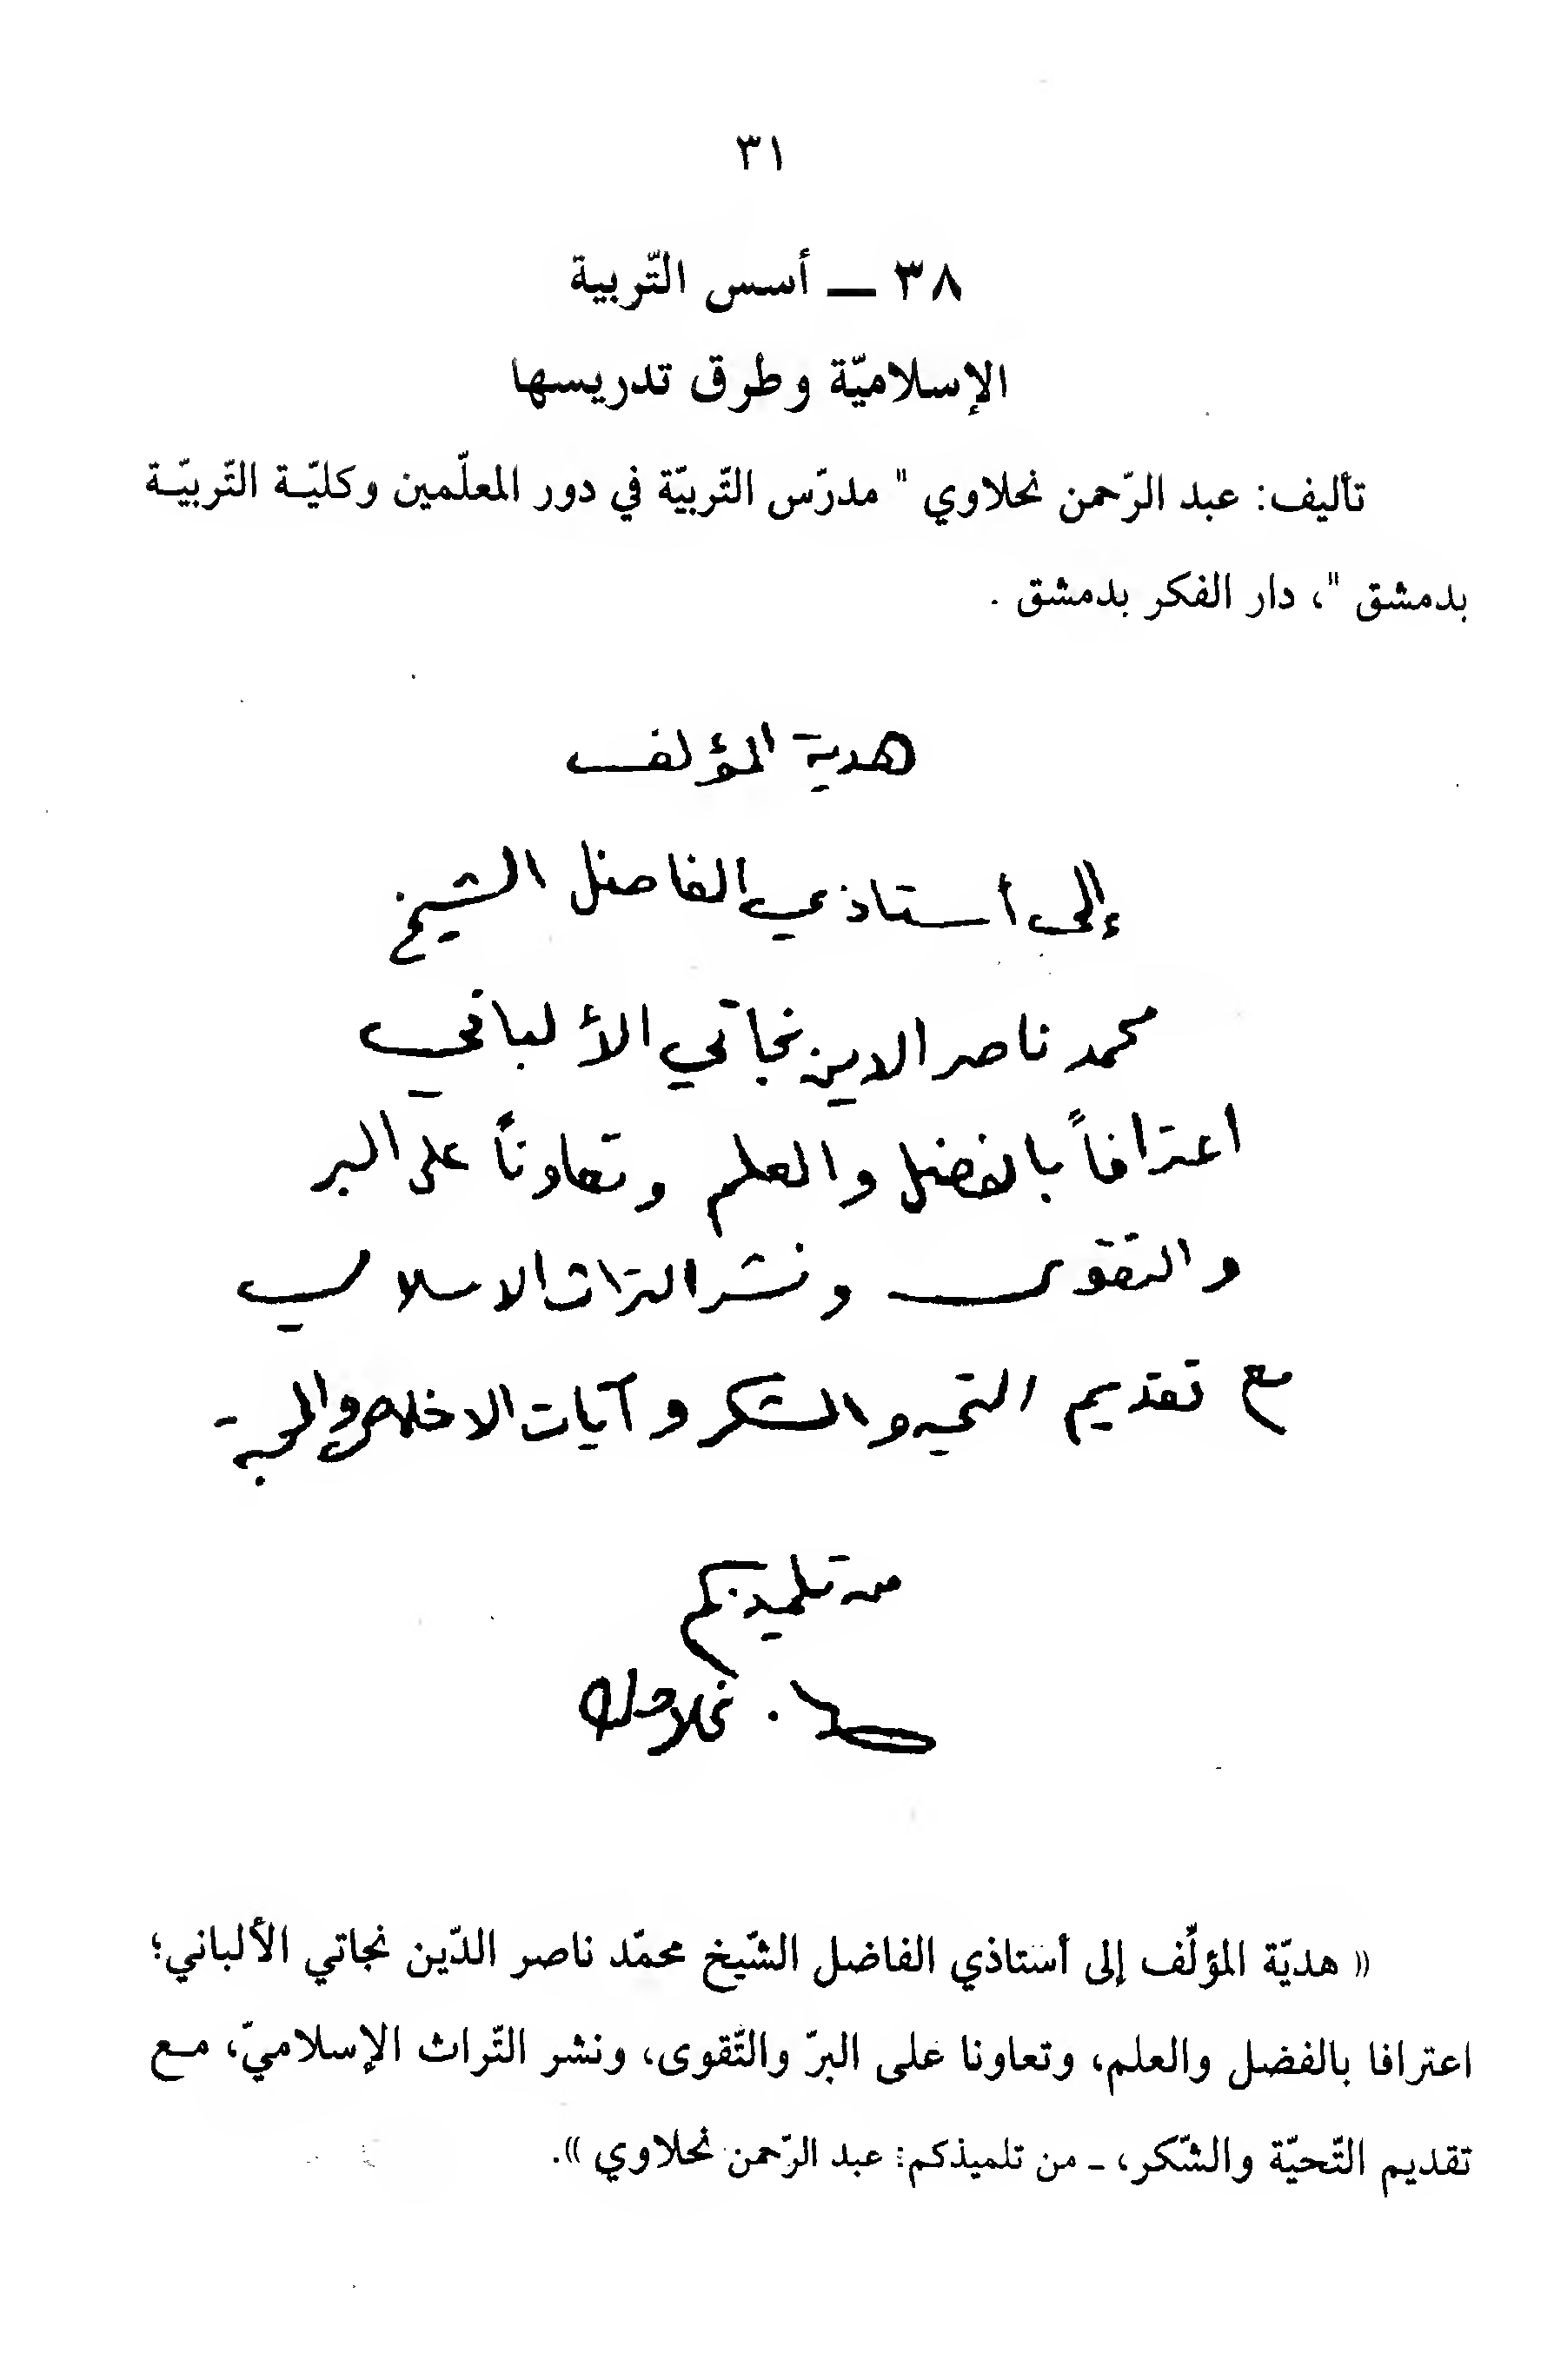 ٣١
٣٨ — أسس التّربية
الإسلاميّة وطرق تدريسها
تأليف: عبد الرّحمن نحلاوي " مدرّس التّربيّة في دور المعلّمين وكليّـة التّربيّـة
بدمشق "، دار الفكر بدمشق .
هدية المؤلف
إلى أستاذي الفاضل الشيخ
محمد ناصر الدين نجاتي الألباني
اعترافاً بالفضل والعلم وتعاوناً على البر
والتقوى ونشر التراث الاسلامي
مع تقديم التحيه والشكر وآيات الاخلاص والمحبة
من تلميذكم
نحلاوي
(( هديّة المؤلِّف إلى أستاذي الفاضل الشّيخ محمّد ناصر الدّين نجاتي الألباني؛
اعترافا بالفضل والعلم، وتعاونا على البرّ والتّقوى، ونشر التّراث الإسلاميّ، مـع
تقديم التّحيّة والشّكر، ـ من تلميذكم: عبد الرّحمن نحلاوي )).